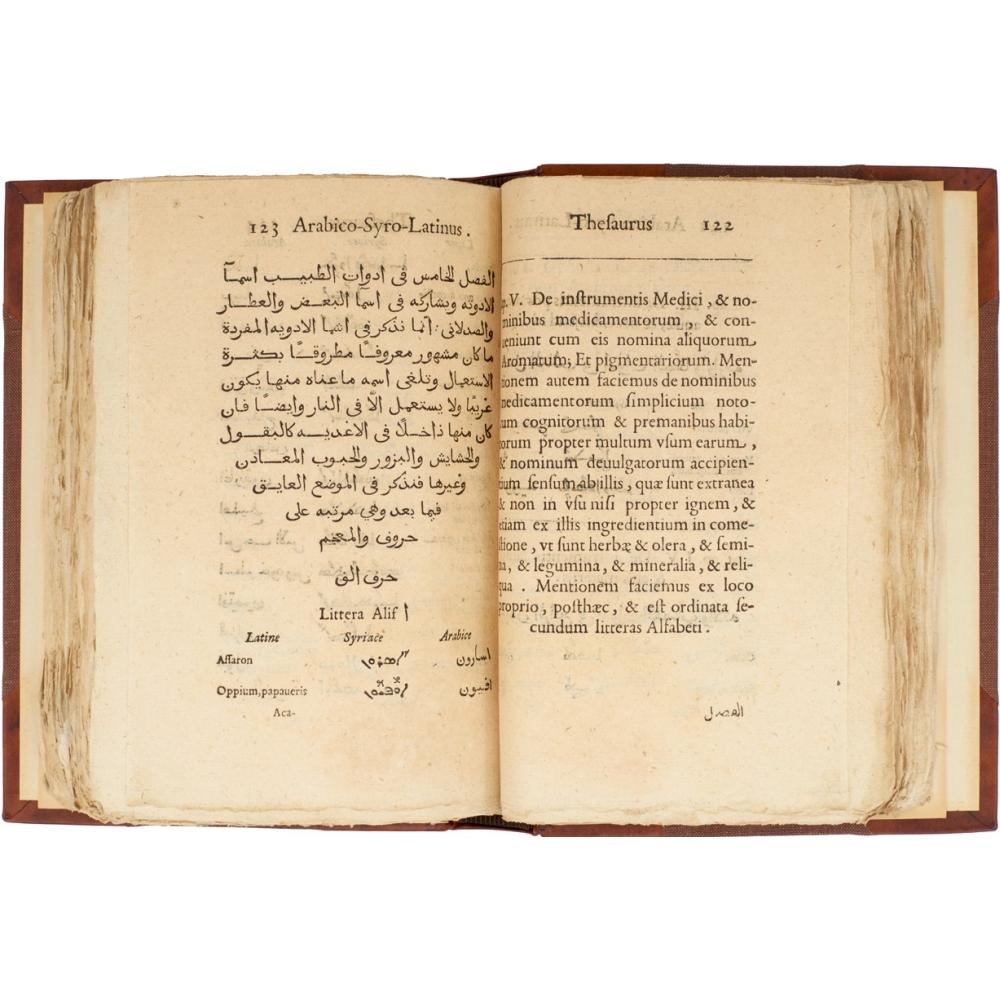 Theſaurus 122
V. De inſtrumentis Medici, & no-
minibus medicamentorum, & con-
ueniunt cum eis nomina aliquorum
Aromatum, Et pigmentariorum. Men-
tionem autem faciemus de nominibus
medicamentorum ſimplicium noto-
rum cognitorum & premanibus habi-
torum propter multum vſum earum,
& nominum deuulgatorum accipien-
tium ſenſum ab illis, quæ ſunt extranea
& non in vſu niſi propter ignem, &
etiam ex illis ingredientium in come-
ſtione, vt ſunt herbæ & olera, & ſemi-
na, & legumina, & mineralia, & reli-
qua. Mentionem faciemus ex loco
proprio, poſthæc, & eſt ordinata ſe-
cundum litteras Alfabeti.
الفصل
123 Arabico-Syro-Latinus.
الفصل الخامس في ادوات الطبيب اسمآ
الادويه ويشاركه في اسما البعض والعطار
والصدلاني؛ انما نذكر في اشيا الادويه المفردة
ما كان مشهور معروفا مطروقا بكثرة
الاستعمال وتلغى اسمه ما عناه منها يكون
غريبا ولا يستعمل الا في النار وايضا فان
كان منها داخلا في الاغديه كالبقول
والحشايش والبزور والحبوب المعادن
وغيرها فنذكر في الموضع العايق
فيما بعد وهي مرتبه على
حروف والمعجم
حرف الق
Littera Alif ا
Latine Syriace Arabice
Aſſaron اسارون
Oppium, papaueris افيون
Aca-